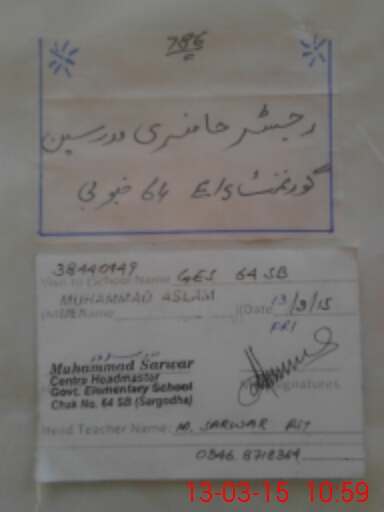 786
رجسٹر حاضری مدرسین
گورنمنٹ E/S 64 جنوبی
38440149
Visit to (School Name GES 64 SB
MUHAMMAD ASLAM
(MEA Name )(Date 13/3/15
FRI
Muhammad Sarwar
Centre Headmaster
Govt. Elementary School
Chak No. 64 SB (Sargodha)
Signatures
Head Teacher Name: M. SARWAR
0346 8718364
13-03-15 10:59